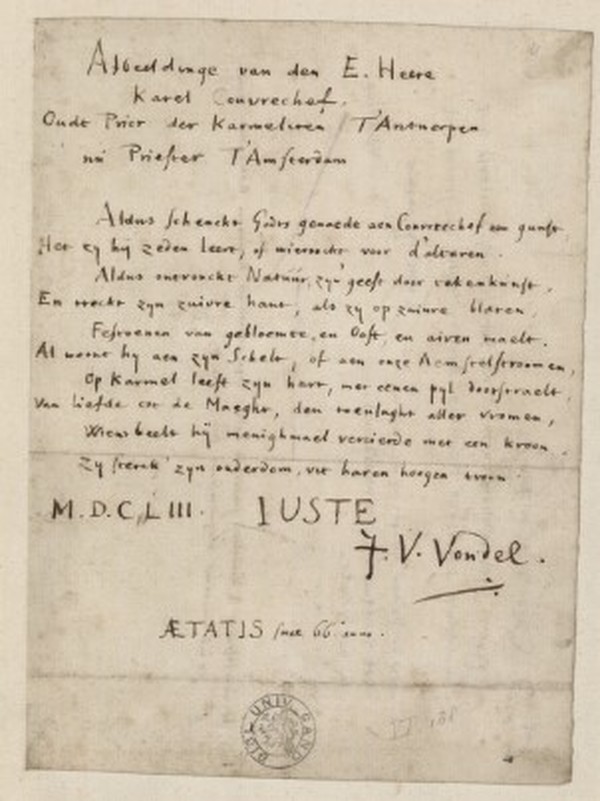 Afbeeldinge van den E. Heere
Karel Couvrechef.
Oudt Prior der Karmeliten T'Antwerpen
nu Priester T'Amsterdam
Aldus schenckt Godts genaede aen Couvrechef een gunst,
Het zy hy zeden leert, of wieroockt voor d'altaren.
Aldus ontvonckt Natuur zyn geest door tekenkunst,
En zyn zuivre hant, als zy op zuivre blaren,
Festoenen van gebloemte, en Ooft, en airen maelt.
Al woont hy aen zyn Schelt, of aen onze Aemstelstroomen,
Op Karmel leeft zyn hart, met eenen pyl doorstraelt,
Van liefde tot de Maeght, den toevlught aller vromen,
Wiens beelt hy menighmael vercierde met een kroon.
Zy sterck' zyn ouderdom, uit haren hoogen troon.
M.D.C.LIII. IUSTE
J. V. Vondel.
ÆTATIS suae 66
BIBL. UNIV. GAND